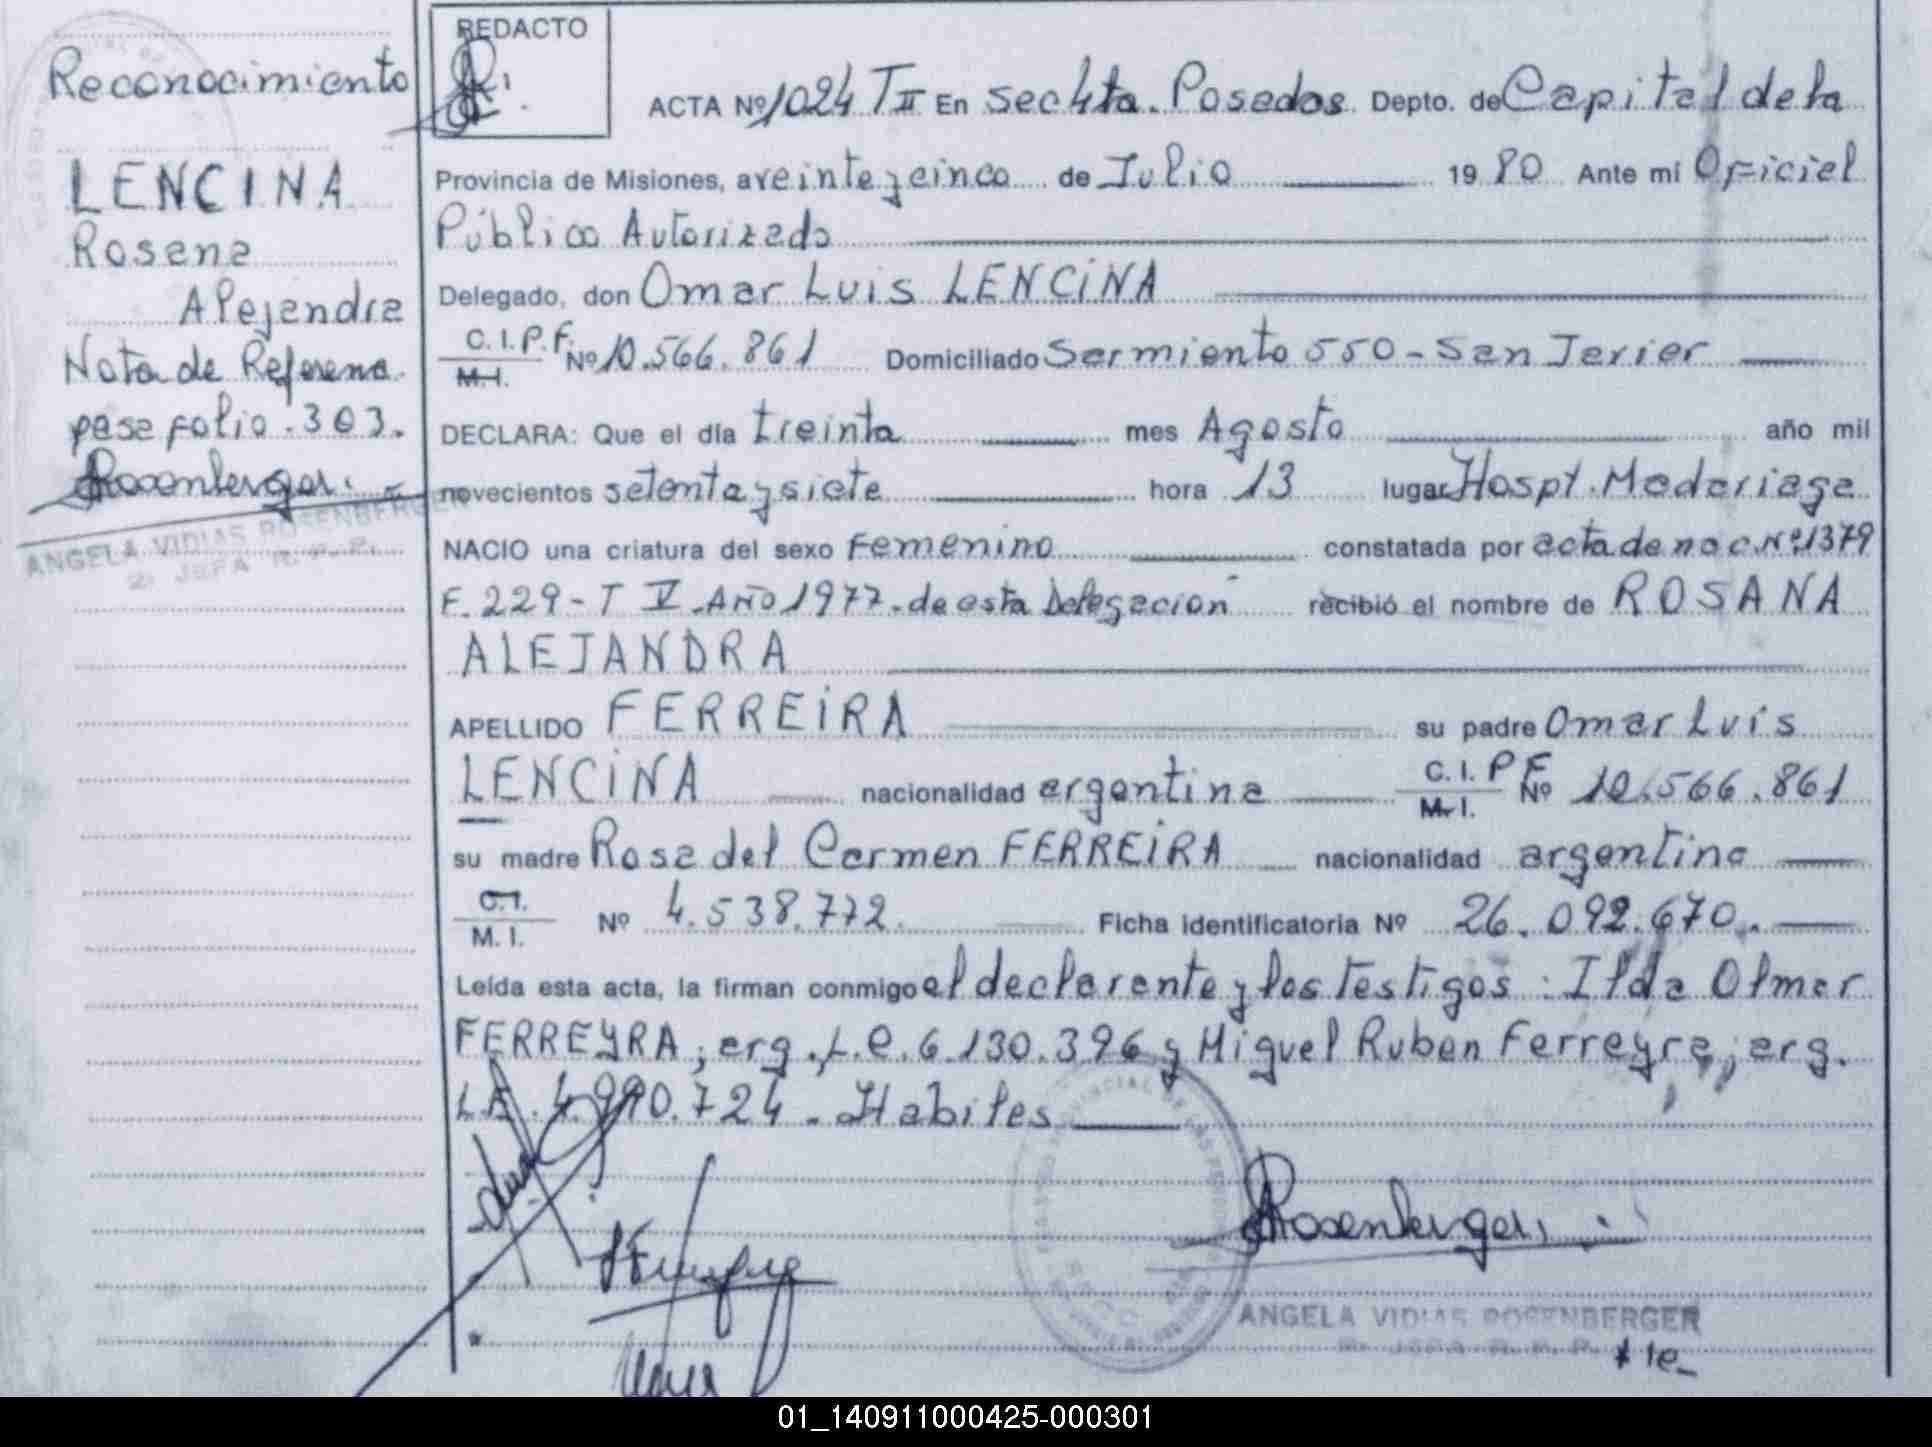 Reconocimiento
LENCINA
Rosana
Alejandra
Nota de Referenc.
pasa folio .303.
Rosenberger.
ANGELA VIDIAS ROSENBERGER
2a JEFA R. P. P.
REDACTO
ACTA Nº 1024 T II En secc 4ta. Posadas Depto. de Capital de la
Provincia de Misiones, a veinte y cinco de Julio 19 80 Ante mí Oficial
Público Autorizado
Delegado, don Omar Luis LENCINA
C. I. P. F. Nº 10.566.861 Domiciliado Sarmiento 550 - San Javier
M. I.
DECLARA: Que el día treinta mes Agosto año mil
novecientos setenta y siete hora 13 lugar Hospt. Madariaga
NACIO una criatura del sexo Femenino constatada por acta de nac. Nº 1379
F. 229 - T V . Año 1977. de esta Delegación recibió el nombre de ROSANA
ALEJANDRA
APELLIDO FERREIRA su padre Omar Luis
LENCINA nacionalidad argentina C. I. P F Nº 10.566.861
M. I.
su madre Rosa del Carmen FERREIRA nacionalidad argentina
C. I.
M. I. Nº 4.538.772. Ficha identificatoria Nº 26.092.670.
Leída esta acta, la firman conmigo el declarante y los testigos : Ilda Olmar
FERREYRA; arg. L.C. 6.130.396 y Miguel Ruben Ferreyra; arg.
L.E. 4.990.724 - Habiles
Rosenberger.
ANGELA VIDIAS ROSENBERGER
2a JEFA R. P. P.
01_140911000425-000301